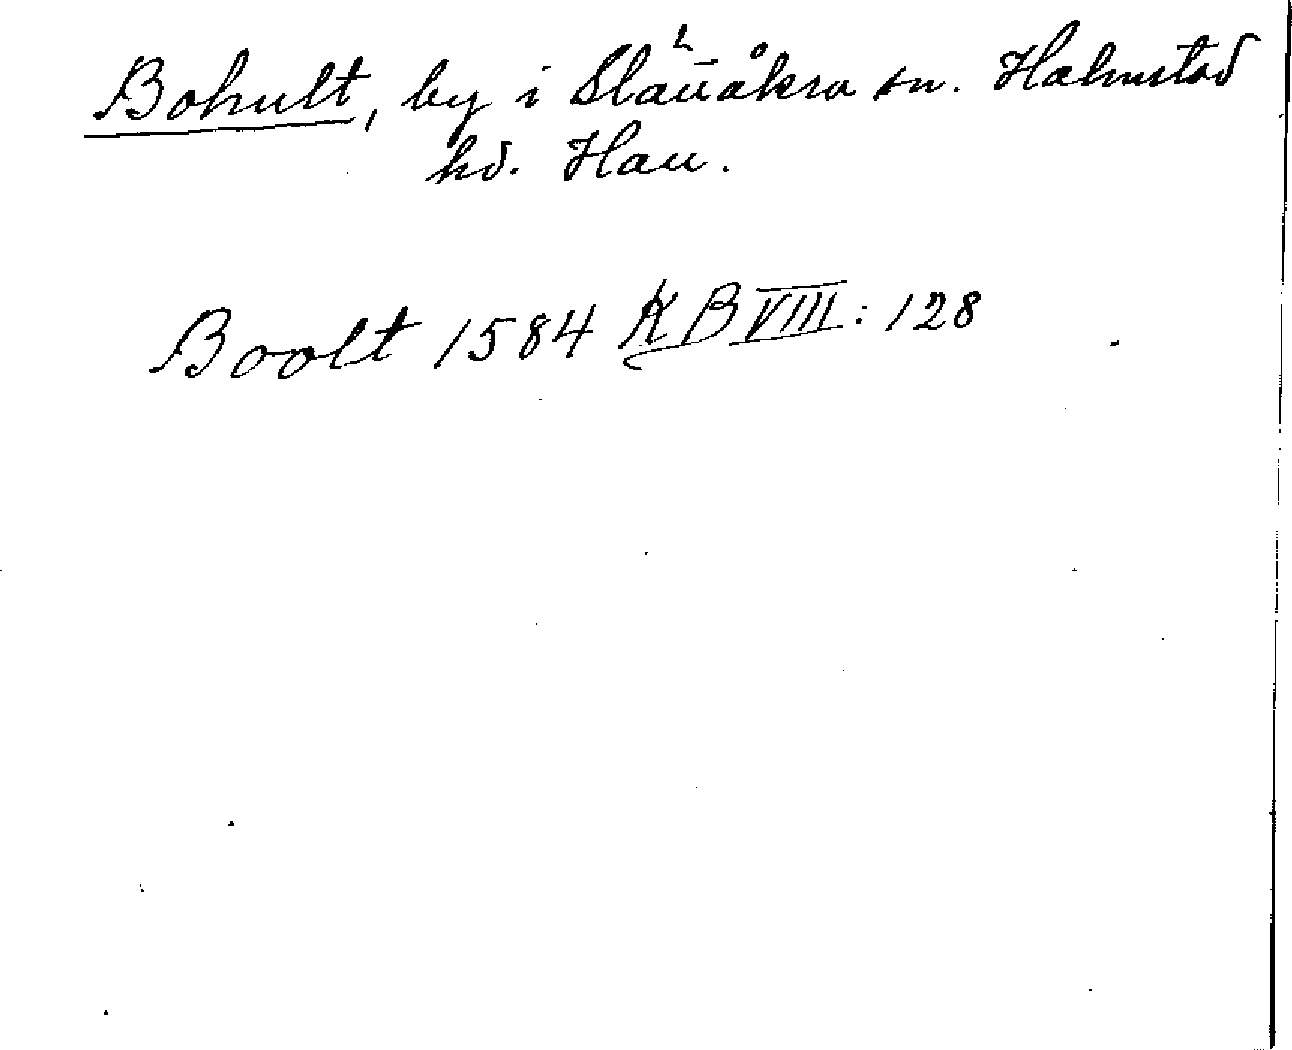 Bohult, by i Slättåkra sn. Halmstad
hd. Hall.
Boolt 1584 KB VIII: 128